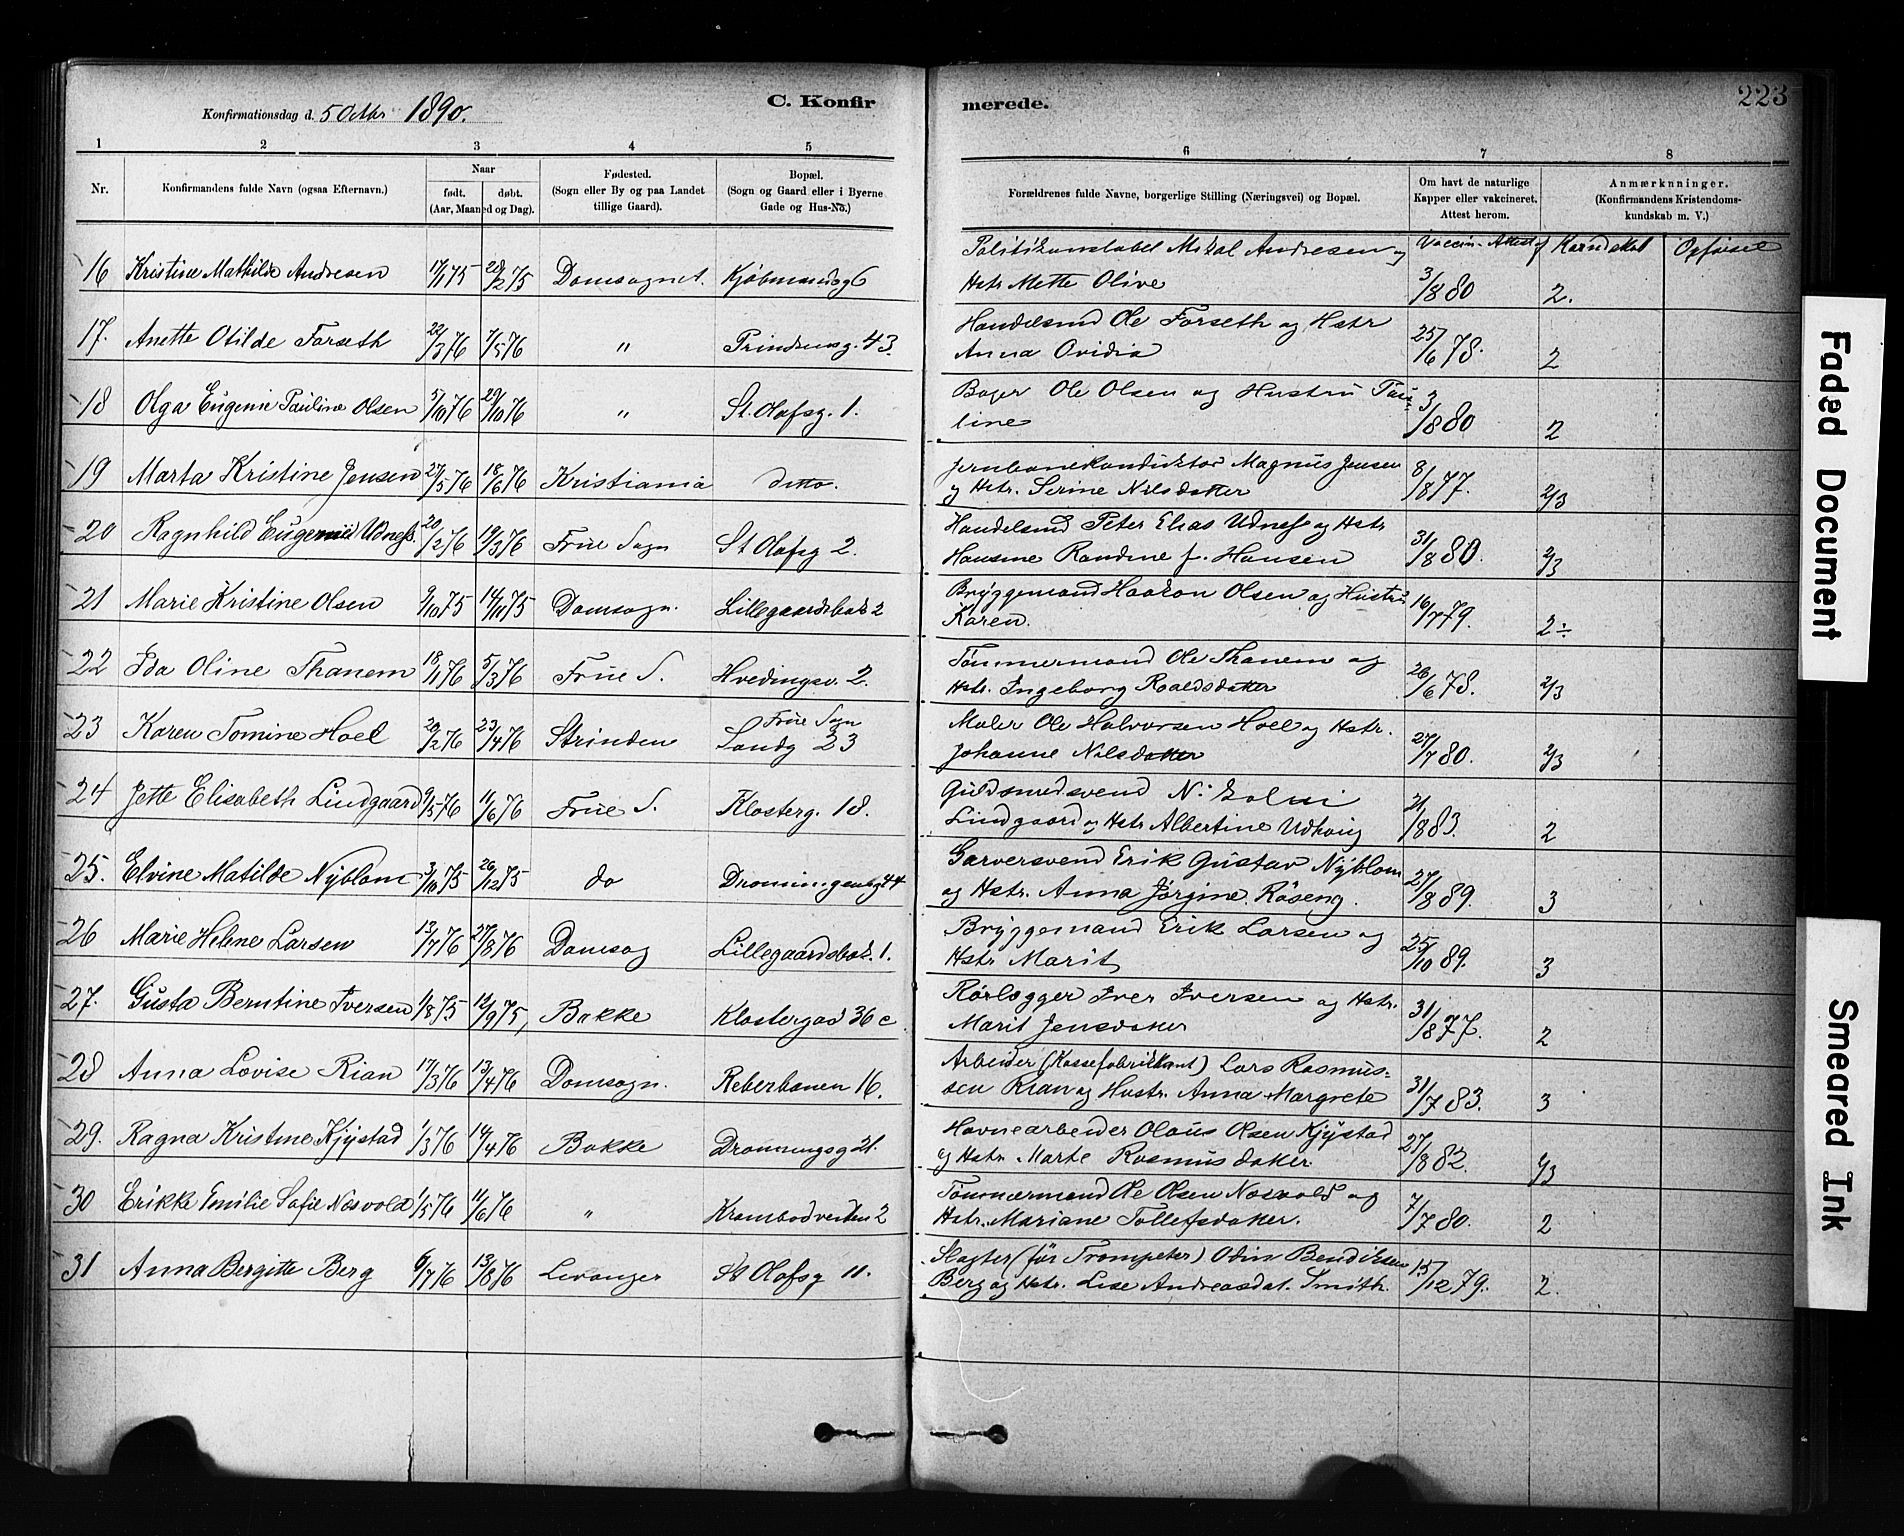 Konfirmationsdag d. 5 Oktbr 1890.
C. Konfirmerede.
223
1 2 3 4 5 6 7 8
Nr.
Konfirmandens fulde Navn (ogsaa Efternavn.)
Naar
født. døbt.
(Aar, Maaned og Dag).
Fødested.
(Sogn eller By og paa Landet
tillige Gaard).
Bopæl.
(Sogn og Gaard eller i Byerne
Gade og Hus-No.)
Forældrenes fulde Navne, borgerlige Stilling (Næringsvei) og Bopæl.
Om havt de naturlige
Kapper eller vakcineret.
Attest herom.
Anmærknninger.
(Konfirmandens Kristendoms-
kundskab m. V.)
Vaccin. Attest af Kundskab Opførsel
16 Kristine Mathilde Andresen 17/1 75 28/2 75 Domsognet. Kjøbmandsg 6 Politikonstabel Mikal Andresen og
Hstr Mette Olive 3/8 80 2.
17. Anette Otilde Forseth 22/3 76 7/5 76 " Prindsensg. 43. Handelsmd Ole Forseth og Hstr
Anna Ovidia 25/6 78. 2
18 Olga Eugenie Pauline Olsen 5/10 76 29/10 76 " St. Olafsg. 1. Bager Ole Olsen og Hustru Pau-
line 3/8 80 2
19 Marta Kristine Jensen 27/5 76 18/6 76 Kristiania ditto. Jernbanekonduktør Magnus Jensen
og Hstr. Serine Nilsdatter 8/8 77. 2/3
20 Ragnhild Eugenie Udness. 20/2 76 19/3 76 Frue Sogn St Olafsg 2. Handelsmd Peter Elias Udness og Hstr
Hansine Randine f. Hansen 31/8 80. 2/3
21 Marie Kristine Olsen 9/10 75 14/11 75 Domsogn. Lillegaardsbak 2 Bryggemand Haakon Olsen og Hustru
Karen. 16/7 79. 2÷
22 Ida Oline Thanem 18/1 76 5/3 76 Frue S. Hvedingsv. 2. Tømmermand Ole Thanem og
Hstr. Ingeborg Roaldsdatter 26/6 78. 2/3
23 Karen Tomine Hoel 20/2 76 23/4 76 Strinden Frue Sogn
Sandg 23 Maler Ole Halvorsen Hoel og Hstr.
Johanne Nilsdatter 27/7 80. 2/3
24 Jette Elisabeth Lindgaard 9/5 76 11/6 76 Frue S. Klosterg. 18. Guldsmedsvend N.
Lindgaard og Hstr Albertine Udhaug 21/8 83. 2
25. Elvine Matilde Nyblom 3/10 75 26/12 75 do Dronningensg 44 Garversvend Erik Gustav Nyblom
og Hstr. Anna Jørgine Røseng. 27/8 89. 3
26 Marie Helene Larsen 13/7 76 27/8 76 Domsog Lillegaardsbak. 1. Bryggemand Erik Larsen og
Hstr Marit 25/10 89. 3
27. Gusta Berntine Iversen 1/8 75 12/9 75, Bakke Klostergad 36 c Rørlægger Iver Iversen og Hstr.
Marit Jensdaker 31/8 77. 2
28 Anna Lovise Rian 17/3 76 13/4 76 Domsogn. Reberbanen 16. Arbeider (Kassefabrikant) Lars Rasmus-
sen Rian og Hustr. Anna Margrete 31/7 83. 3
29. Ragna Kristine Kjystad 1/3 76 14/4 76 Bakke Dronningsg 21. Havnearbeider Olaus Olsen Kjystad
og Hstr. Marte Rasmusdaker. 27/8 82. 2/3
30 Erikke Emilie Sofie Nesvold 1/5 76 11/6 76 " Krambodveiten 2 Tømmermand Ole Olsen Nesvold og
Hstr. Mariane Tollefsdaker. 7/7 80. 2
31 Anna Bergitte Berg 6/7 76 13/8 76 Levanger St Olafsg 11. Slagter (før Trompeter) Odin Bendiksen
Berg og Hstr. Lise Andreasdat. Smith. 15/12 79. 2.
Faded Document
Smeared Ink